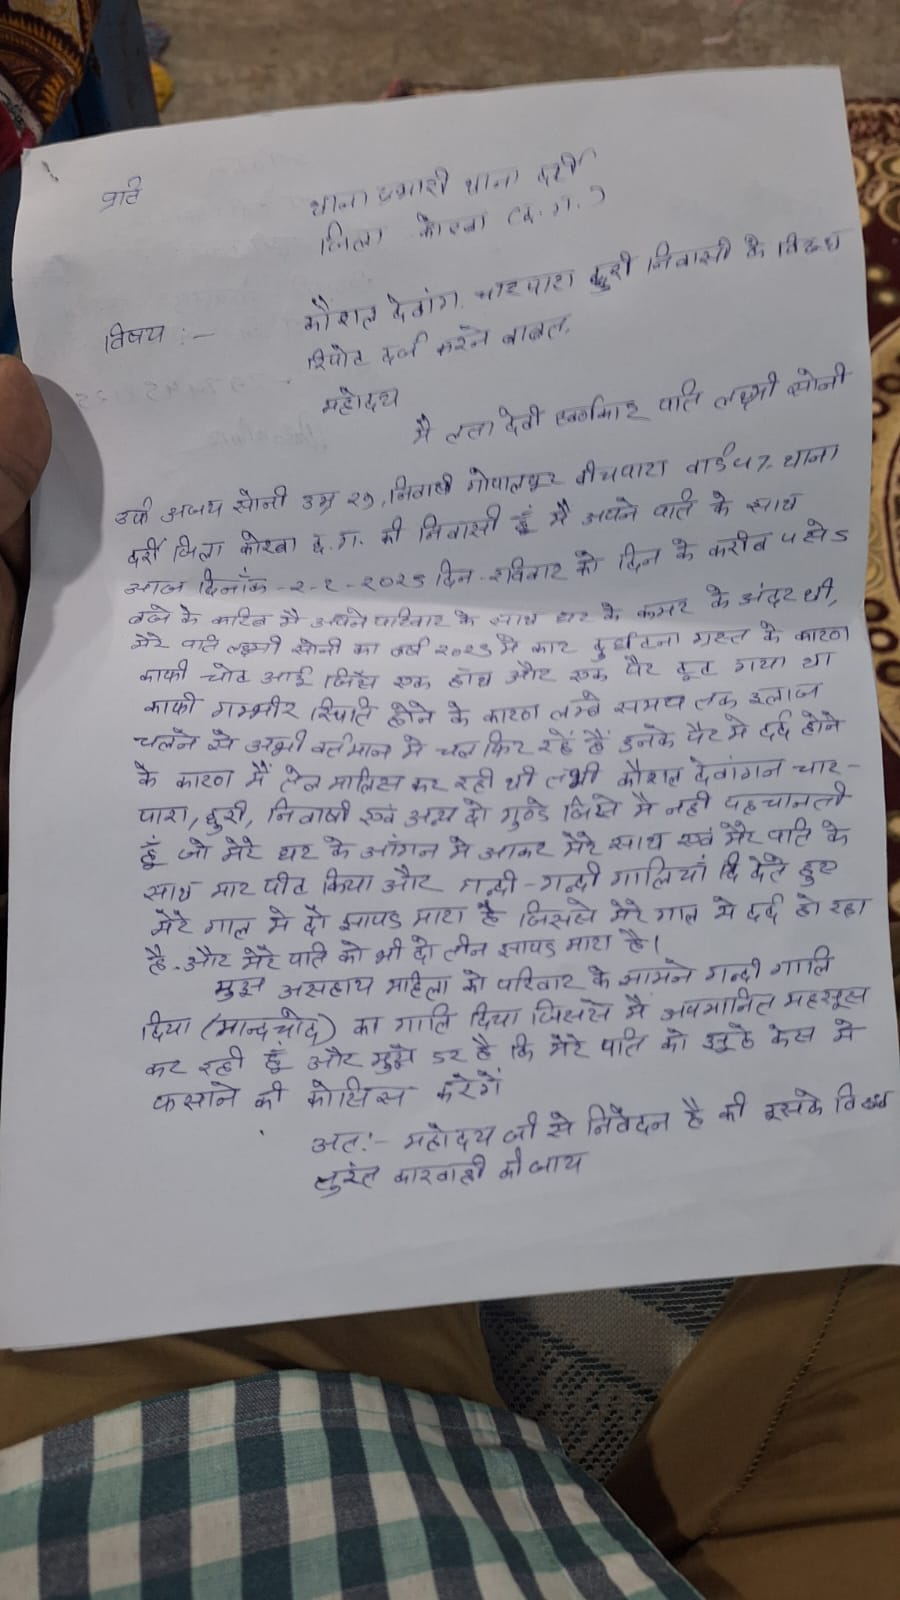 प्रति
थाना प्रभारी थाना दर्री
जिला कोरबा (छ.ग.)
विषय :- कौशल देवांग. चारपारा छुरी निवासी के विरूध
रिपोट दर्ज करने बाबत.
महोदय
मै लता देवी स्वर्णकार पति लक्ष्मी सोनी
उर्फ अजय सोनी उम्र २७, निवासी गोपालपूर बीचपारा वार्ड ५7. थाना
दर्री जिला कोरबा छ.ग. की निवासी हूं मै अपने पति के साथ
आज दिनाँक - २-२-२०२५ दिन - रविवार को दिन के करीब
बजे के करिब मै अपने परिवार के साथ घर के कमर के अंदर थी,
मेरे पति लक्ष्मी सोनी का वर्ष २०२३ मे कार दुर्घटना ग्रस्त के कारण
काफी चोट आई जिसे एक हाथ और एक पैर टूट गया था
काफी गम्भीर स्थिति होने के कारण लम्बे समय तक इलाज
चलने से अभी वर्तमान मे चल फिर रहें हैं इनके पैर मे दर्द होने
के कारण मैं तेल मालिस कर रही थी तभी कौशल देवांगन चार-
पारा, छुरी, निवासी एवं अन्य दो गुण्डे जिसे मै नही पहचानती
हूँ जो मेरे घर के आँगन मे आकर मेरे साथ एवं मेरे पति के
साथ मार पीट किया और गन्दी-गन्दी गालियाँ दि देते हुए
मेरे गाल मे दो झापड मारा है जिससे मेरे गाल मे दर्द हो रहा
है. और मेरे पति को भी दो तीन झापड मारा है।
मुझ असहाय महिला को परिवार के सामने गन्दी गालि
दिया (मान्दचोद) का गालि दिया जिससे मै अपमानित महसूस
कर रही हूँ और मुझे डर है कि मेरे पति को झुठे केस मे
फसाने की कोसिस करेगें
अत:- महोदय जी से निवेदन है की इसके विरूध
तुरंत कारवाही की जाय